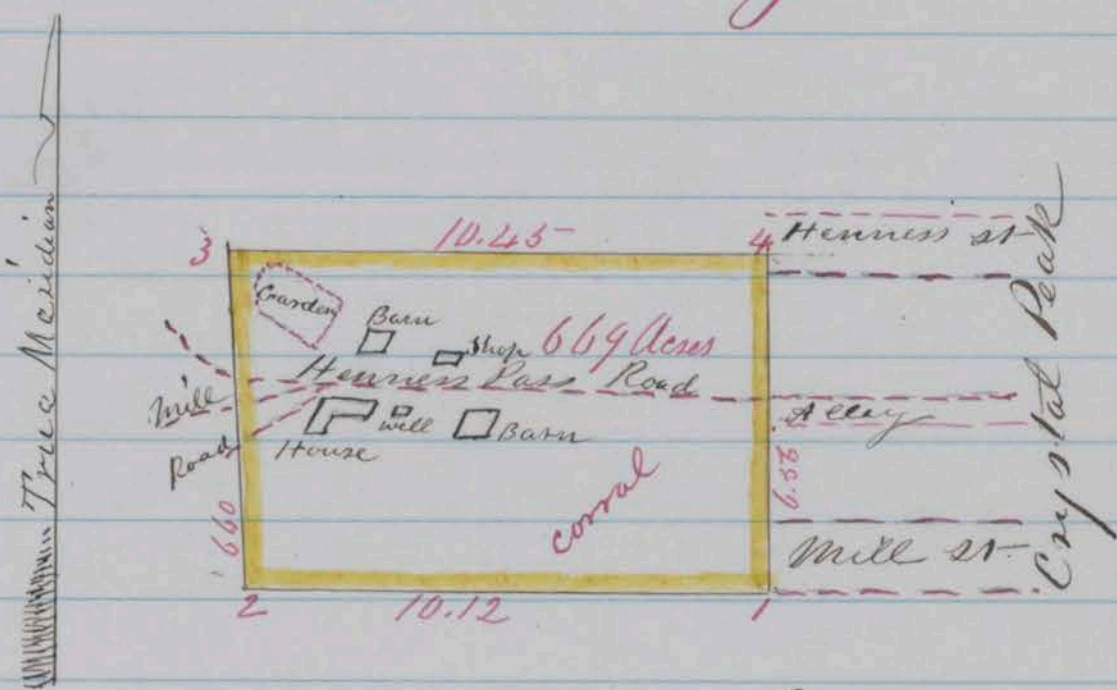 True Meridian
3
10.45
4
Henness st
Garden
Barn
Shop
669 Acres
Henness Pass Road
Mill
Road
House
Well
Barn
Alley
660
corral
Mill st
2
10.12
1
Crystal Peak